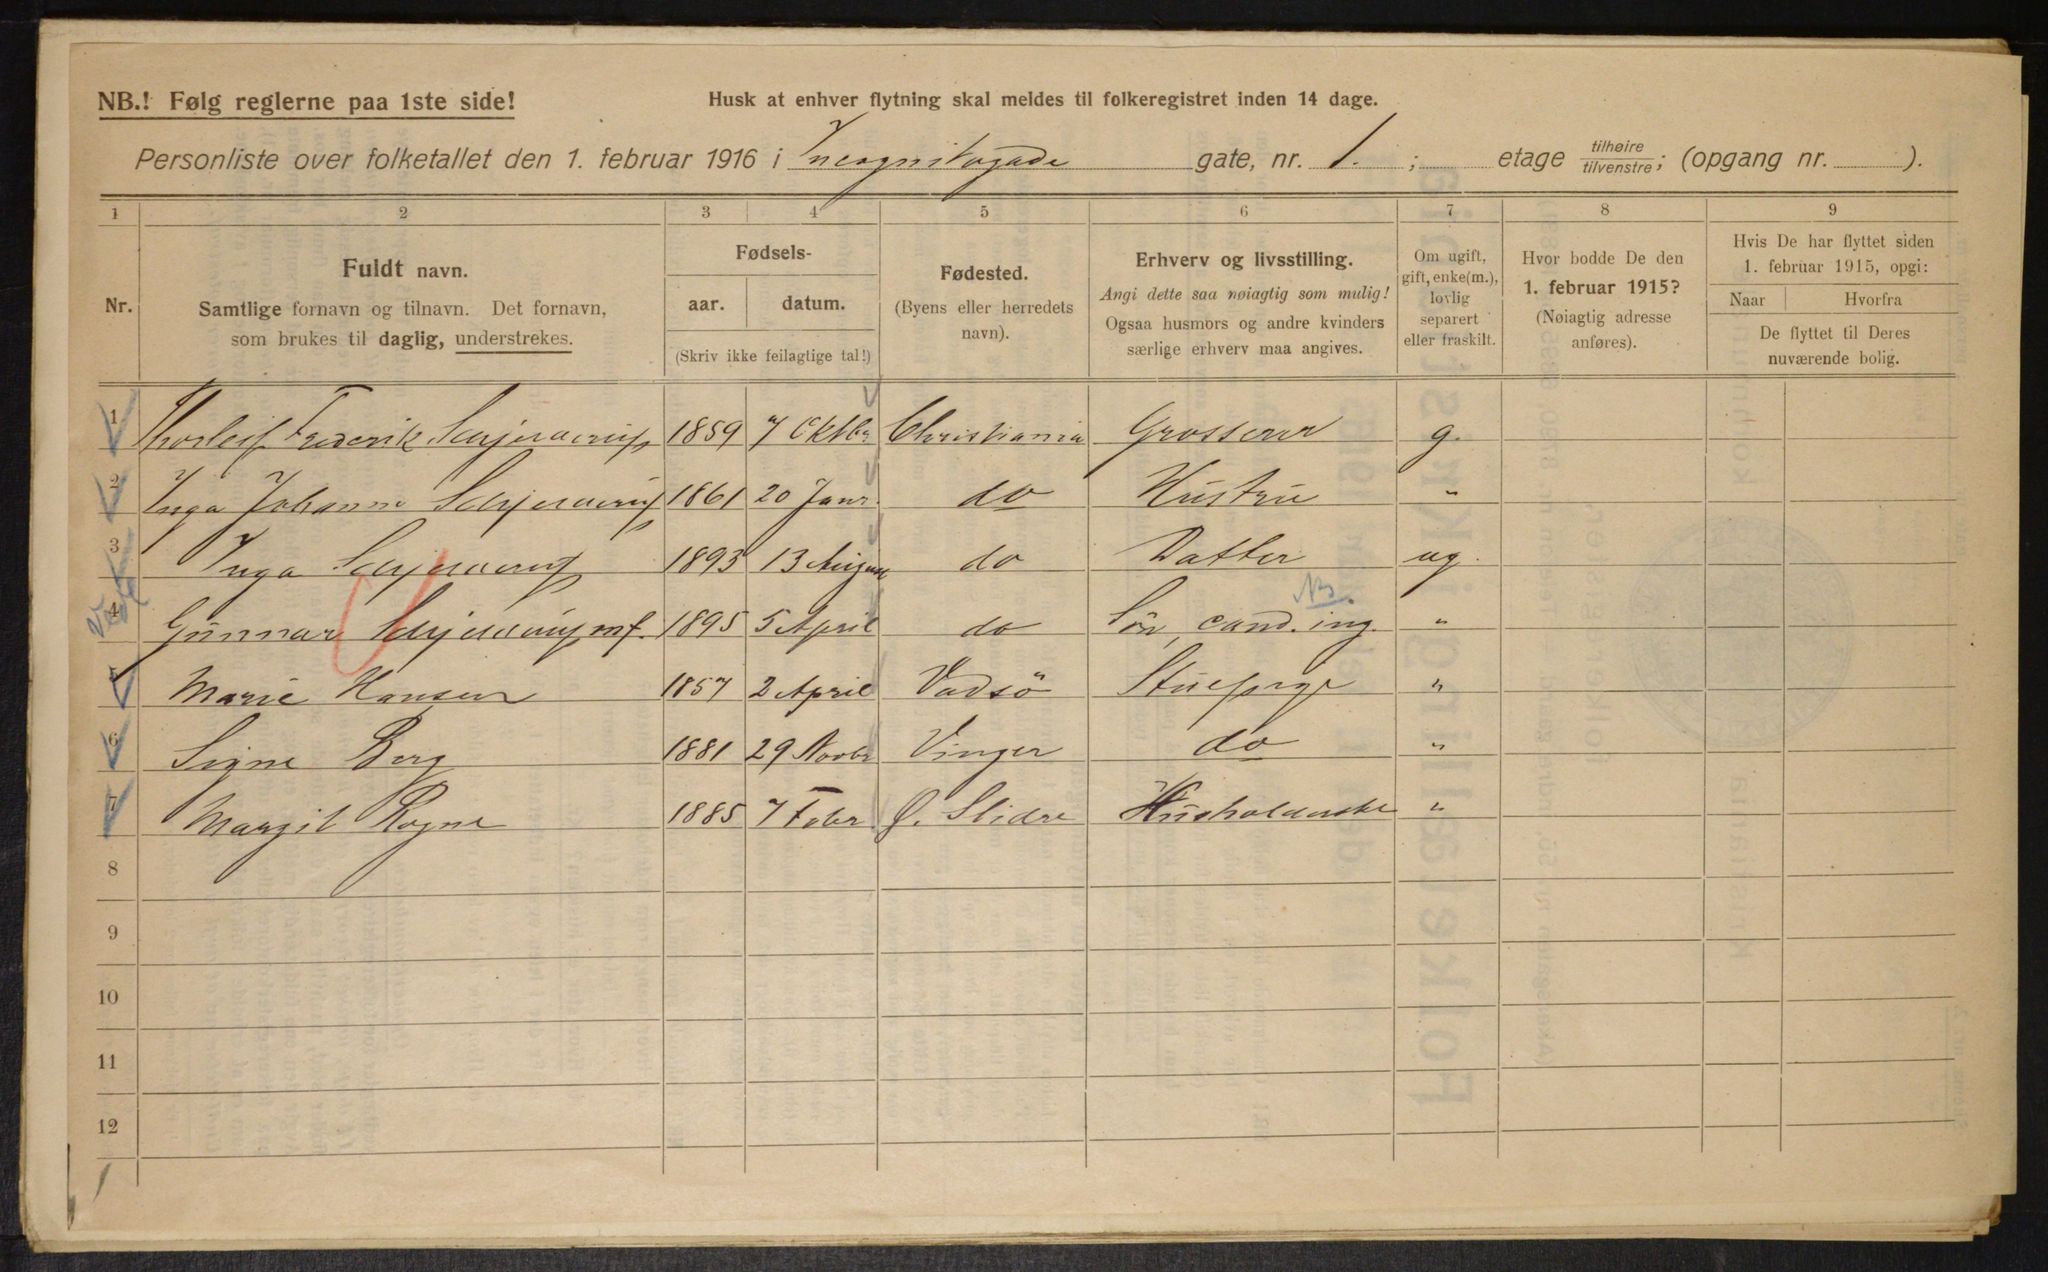 NB.! Følg reglerne paa 1ste side!
Husk at enhver flytning skal meldes til folkeregistret inden 14 dage.
Personliste over folketallet den 1. februar 1916 i Incognitogade gate, nr. 1. ; etage tilhøire/tilvenstre; (opgang nr. ).
1 2 3 4 5 6 7 8 9
Nr. Fuldt navn. Samtlige fornavn og tilnavn. Det fornavn, som brukes til daglig, understrekes.
Fødsels- aar. datum. (Skriv ikke feilagtige tal!)
Fødested. (Byens eller herredets navn).
Erhverv og livsstilling. Angi dette saa nøiagtig som mulig! Ogsaa husmors og andre kvinders særlige erhverv maa angives.
Om ugift, gift, enke(m.), lovlig separert eller fraskilt.
Hvor bodde De den 1. februar 1915? (Nøiagtig adresse anføres).
Hvis De har flyttet siden 1. februar 1915, opgi: Naar Hvorfra De flyttet til Deres nuværende bolig.
1 Thorleif Frederik Schjelderup 1859 7 Oktbr Christiania Grosserer g.
2 Inga Johanne Schjelderup 1861 20 Janr. do Hustru "
3 Inga Schjelderup 1893 13 August do Datter ug.
NB.
4 Gunnar Schjelderup mf. 1895 5 April do Sön, cand. ing. "
5 Marie Hansen 1857 2 April Vadsö Stuepige "
6 Signe Berg 1881 29 Novbr Vinger do "
7 Margit Rogne 1885 7 Febr Ø. Slidre Husholderske "
8
9
10
11
12